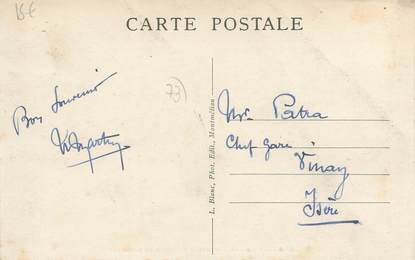 15€
CARTE POSTALE
Bon Souvenir
73
L. Blanc, Phot. Edit., Montmélian
Mr. Patra
Chef Gare
Vinay
Isère